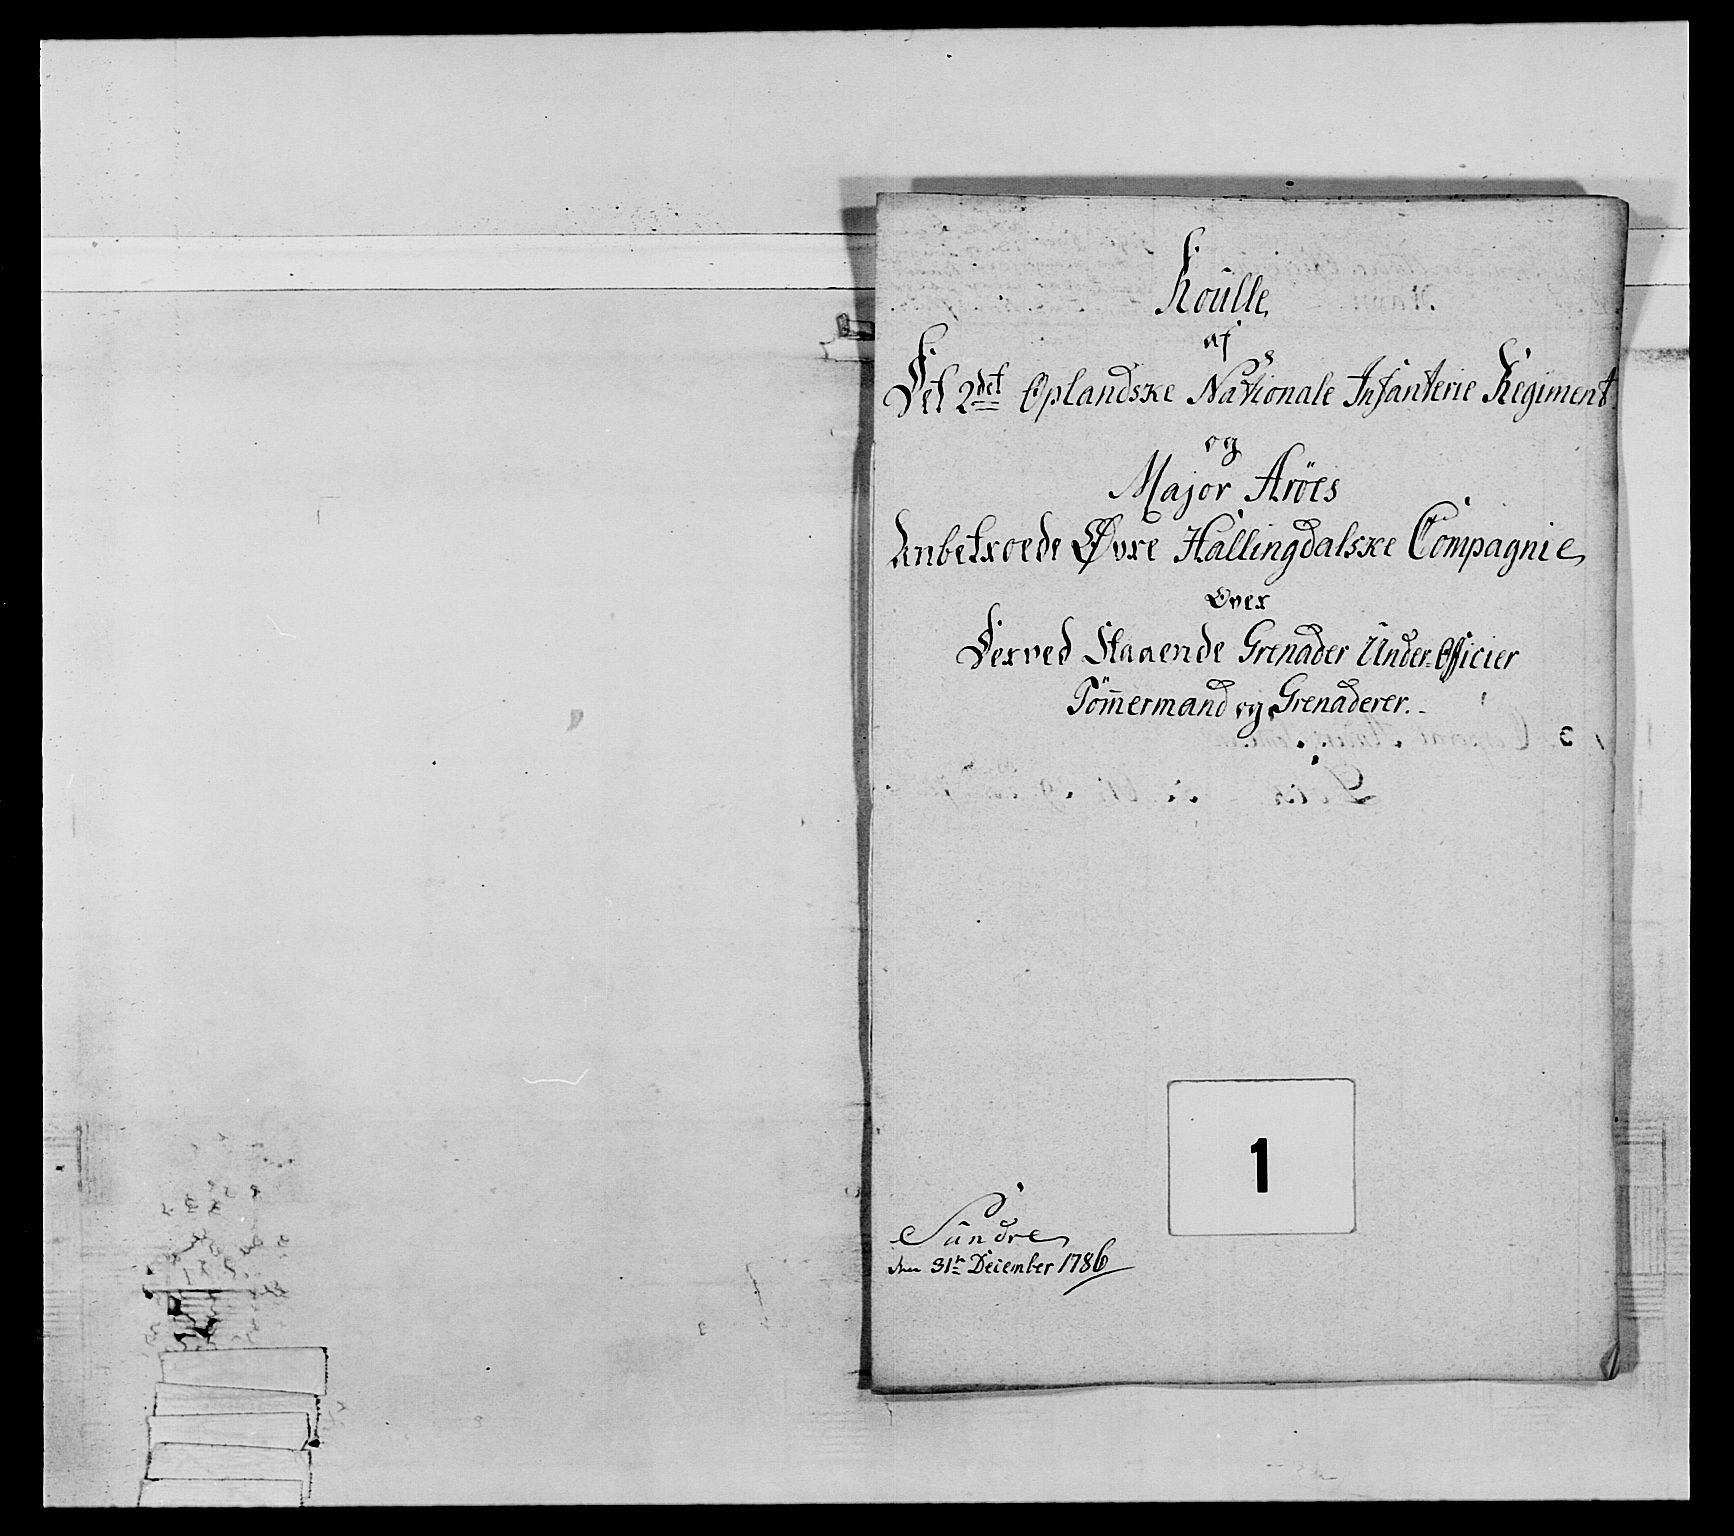 Roulle
af
Det 2det Oplandske Nationale Infanterie Regiment
og
Major Aröes
Anbetroede Øvre Hallingdalske Compagnie
Over
Derved Staaende Grenader Under-Officier
Tömmermand og Grenaderer.-
1
Sundre
den 31te December 1786